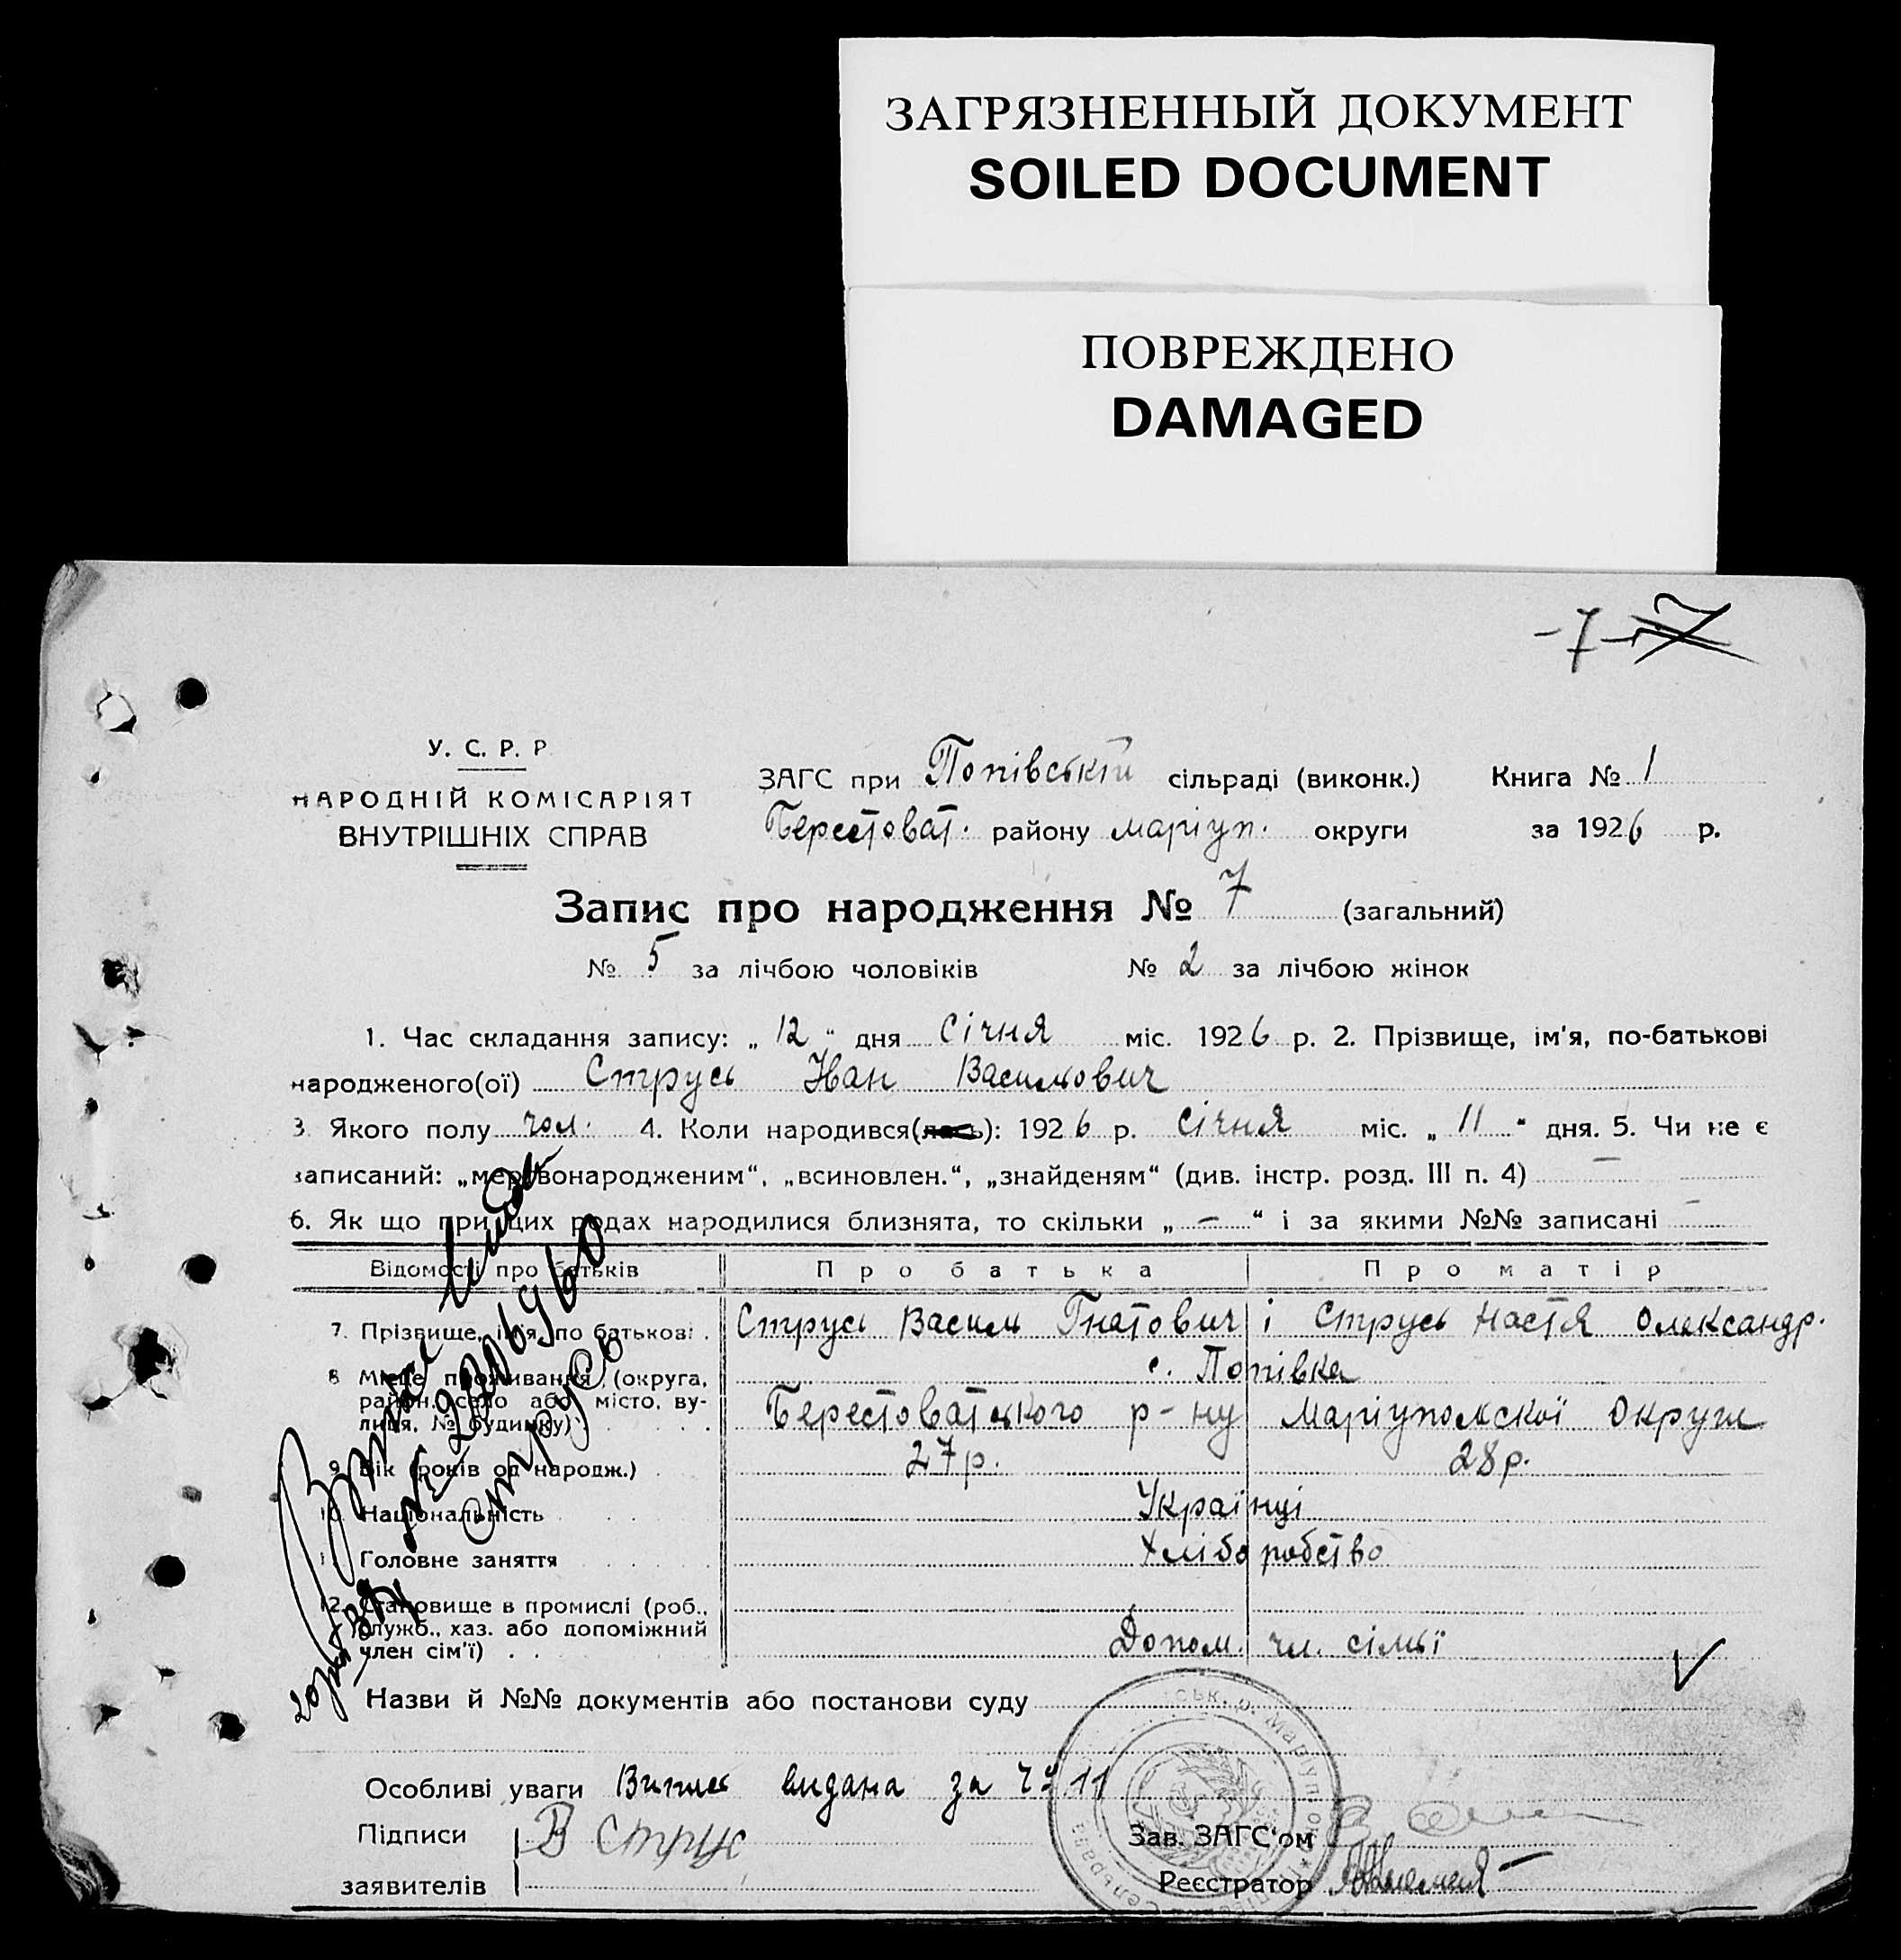 ЗАГРЯЗНЕННЫЙ ДОКУМЕНТ
SOILED DOCUMENT
ПОВРЕЖДЕНО
DAMAGED
-7- 7
У. С. Р. Р
НАРОДНІЙ КОМІСАРІЯТ
ВНУТРІШНІХ СПРАВ
ЗАГС при Попівській сільраді (виконк.) Книга № 1
Берестоват. району маріуп. округи за 1926 р.
Запис про народження № 7 (загальний)
№ 5 за лічбою чоловіків № 2 за лічбою жінок
1. Час складання запису: „ 12 “ дня Січня міс. 1926 р. 2. Прізвище, ім'я, по-батькові
народженого(ої) Струсь Іван Васильович
3. Якого полу чол. 4. Коли народився(лась): 1926 р. Січня міс. „ 11 “ дня. 5. Чи не є
записаний: „мертвонародженим“, „всиновлен.“, „знайденям“ (див. інстр. розд. III п. 4) —
6. Як що при цих родах народилися близнята, то скільки „ — “ і за якими №№ записані —
Відомості про батьків Про батька Про матір
7. Прізвище, ім'я, по батькові . Струсь Василь Гнатович і Струсь Настя Олександр.
8 Місце проживання (округа, район, село або місто, вулиця, № будинку) с. Попівка
Берестоватського р-ну Маріупольської Округи
9. Вік (років од народж.) . 27 р. 28 р.
10. Національність Українці
11. Головне заняття Хліборобство
12. Становище в промислі (роб., служб., хаз. або допоміжний член сім'ї) . . Допом. чл. сімьї
Назви й №№ документів або постанови суду
Особливі уваги Випись видана за № 11
Підписи В Струс
Зав. ЗАГС'ом
заявителів
Реєстратор
Струсь